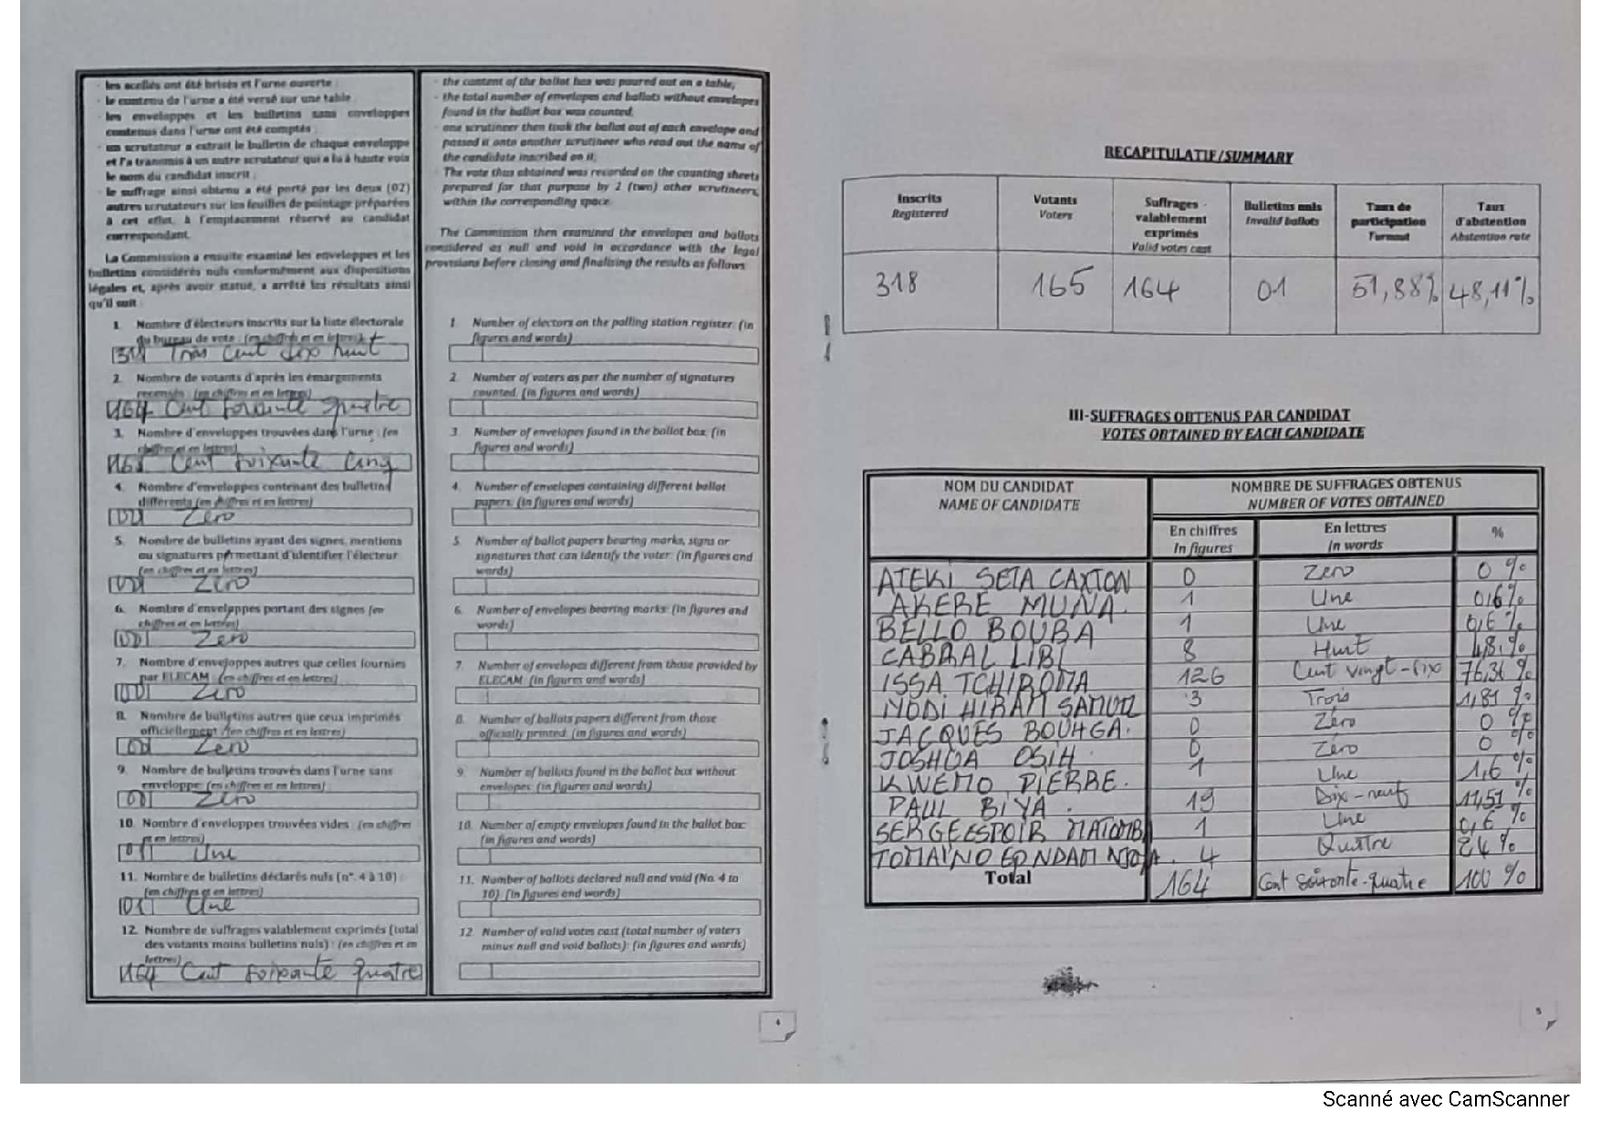 - les scellés ont été brisés et l'urne ouverte ;
- le contenu de l'urne a été versé sur une table
- les enveloppes et les bulletins sans enveloppes
contenus dans l'urne ont été comptés ;
- un scrutateur a extrait le bulletin de chaque enveloppe
et l'a transmis à un autre scrutateur qui a lu à haute voix
le nom du candidat inscrit ;
- le suffrage ainsi obtenu a été porté par les deux (02)
autres scrutateurs sur les feuilles de pointage préparées
à cet effet, à l'emplacement réservé au candidat
correspondant.
La Commission a ensuite examiné les enveloppes et les
bulletins considérés nuls conformément aux dispositions
légales et, après avoir statué, a arrêté les résultats ainsi
qu'il suit :
1. Nombre d'électeurs inscrits sur la liste électorale
du bureau de vote : (en chiffres et en lettres)
318 Trois Cent dix huit
2. Nombre de votants d'après les émargements
recensés : (en chiffres et en lettres)
164 Cent soixante quatre
3. Nombre d'enveloppes trouvées dans l'urne : (en
chiffres et en lettres)
165 Cent soixante Cinq
4. Nombre d'enveloppes contenant des bulletins
différents (en chiffres et en lettres)
00 Zero
5. Nombre de bulletins ayant des signes, mentions
ou signatures permettant d'identifier l'électeur
(en chiffres et en lettres)
00 Zéro
6. Nombre d'enveloppes portant des signes (en
chiffres et en lettres)
00 Zero
7. Nombre d'enveloppes autres que celles fournies
par ELECAM (en chiffres et en lettres)
00 Zero
8. Nombre de bulletins autres que ceux imprimés
officiellement (en chiffres et en lettres)
00 Zero
9. Nombre de bulletins trouvés dans l'urne sans
enveloppe: (en chiffres et en lettres)
00 Zero
10. Nombre d'enveloppes trouvées vides : (en chiffres
et en lettres)
01 Une
11. Nombre de bulletins déclarés nuls (n°. 4 à 10) :
(en chiffres et en lettres)
01 Une
12. Nombre de suffrages valablement exprimés (total
des votants moins bulletins nuls) : (en chiffres et en
lettres)
164 Cent soixante quatre
- the content of the ballot box was poured out on a table;
- the total number of envelopes and ballots without envelopes
found in the ballot box was counted;
- one scrutineer then took the ballot out of each envelope and
passed it onto another scrutineer who read out the name of
the candidate inscribed on it;
- The vote thus obtained was recorded on the counting sheets
prepared for that purpose by 2 (two) other scrutineers,
within the corresponding space.
The Commission then examined the envelopes and ballots
considered as null and void in accordance with the legal
provisions before closing and finalising the results as follows
1. Number of electors on the polling station register: (in
figures and words)
2. Number of voters as per the number of signatures
counted: (in figures and words)
3. Number of envelopes found in the ballot box: (in
figures and words)
4. Number of envelopes containing different ballot
papers: (in figures and words)
5. Number of ballot papers bearing marks, signs or
signatures that can identify the voter: (in figures and
words)
6. Number of envelopes bearing marks: (in figures and
words)
7. Number of envelopes different from those provided by
ELECAM: (in figures and words)
8. Number of ballots papers different from those
officially printed: (in figures and words)
9. Number of ballots found in the ballot box without
envelopes: (in figures and words)
10. Number of empty envelopes found in the ballot box:
(in figures and words)
11. Number of ballots declared null and void (No. 4 to
10): (in figures and words)
12. Number of valid votes cast (total number of voters
minus null and void ballots): (in figures and words)
4
RECAPITULATIF/SUMMARY
Inscrits Registered
Votants Voters
Suffrages valablement exprimés Valid votes cast
Bulletins nuls Invalid ballots
Taux de participation Turnout
Taux d'abstention Abstention rate
318 165 164 01 51,88% 48,11%
III-SUFFRAGES OBTENUS PAR CANDIDAT
VOTES OBTAINED BY EACH CANDIDATE
NOM DU CANDIDAT NOMBRE DE SUFFRAGES OBTENUS
NAME OF CANDIDATE NUMBER OF VOTES OBTAINED
En chiffres En lettres %
In figures In words
ATEKI SETA CAXTON 0 Zero 0 %
AKERE MUNA. 1 Une 0,6%
BELLO BOUBA 1 Une 0,6 %
CABRAL LIBI 8 Huit 4,8.%
ISSA TCHIROMA 126 Cent vingt-six 76,36 %
IYODI HIRAM SAMUEL 3 Trois 1,81 %
JACQUES BOUHGA. 0 Zéro 0 %
JOSHUA OSIH. 0 Zéro 0 %
KWEMO PIERRE. 1 Une 1,6 %
PAUL BIYA. 19 Dix-neuf 11,51 %
SERGE ESPOIR MATOMBA 1 Une 0,6 %
TOMAINO ERNDAM NJOYA. 4 Quatre 2,4 %
Total 164 Cent Soixante-quatre 100 %
5
Scanné avec CamScanner